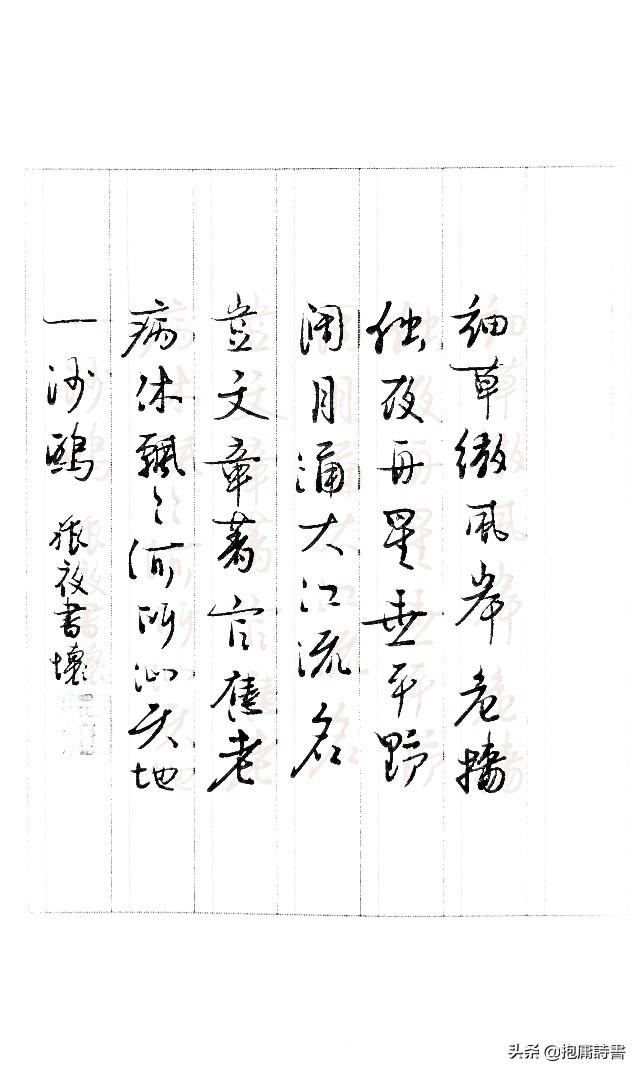 細草微風岸危檣
独夜舟星垂平野
阔月涌大江流名
豈文章著官應老
病休飄々何所似天地
一沙鷗 旅夜書懷
头条 @抱庸詩書